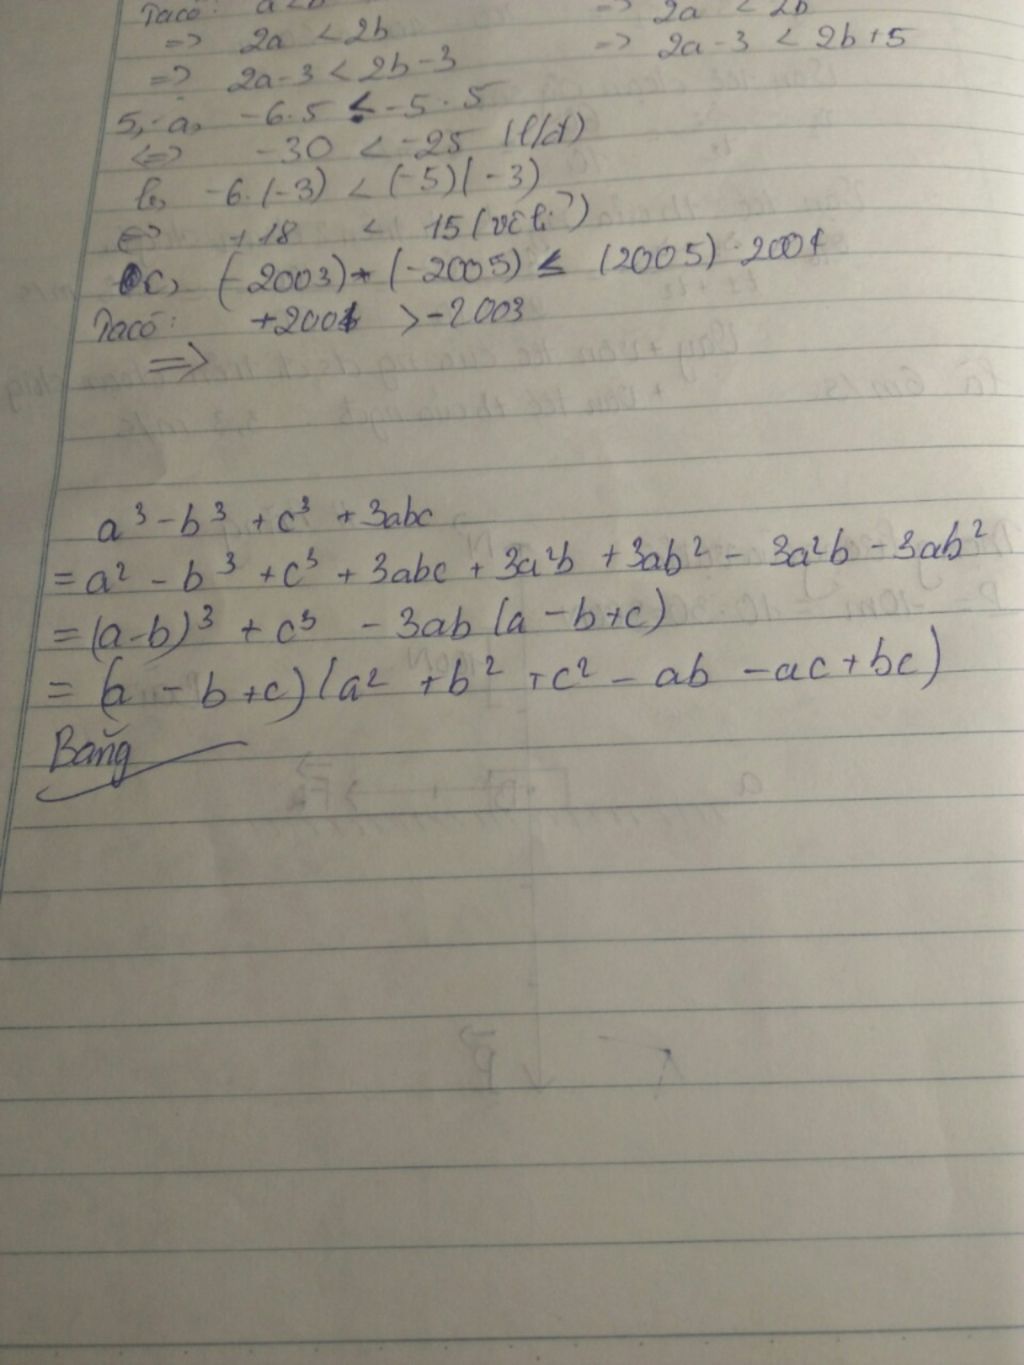 Ta có: a < b => 2a < 2b
=> 2a < 2b => 2a - 3 < 2b + 5
=> 2a - 3 < 2b - 3
5, a, -6.5 ≤ -5.5
<=> -30 < -25 (l/đ)
b, -6.(-3) < (-5)(-3)
<=> +18 < 15 (vô lí)
c, (-2003)+(-2005) ≤ (2005).2004
Ta có: +2004 > -2003
=>
a³ - b³ + c³ + 3abc
= a² - b³ + c³ + 3abc + 3a²b + 3ab² - 3a²b - 3ab²
= (a-b)³ + c³ - 3ab (a - b + c)
= (a - b + c)(a² + b² + c² - ab - ac + bc)
Bằng